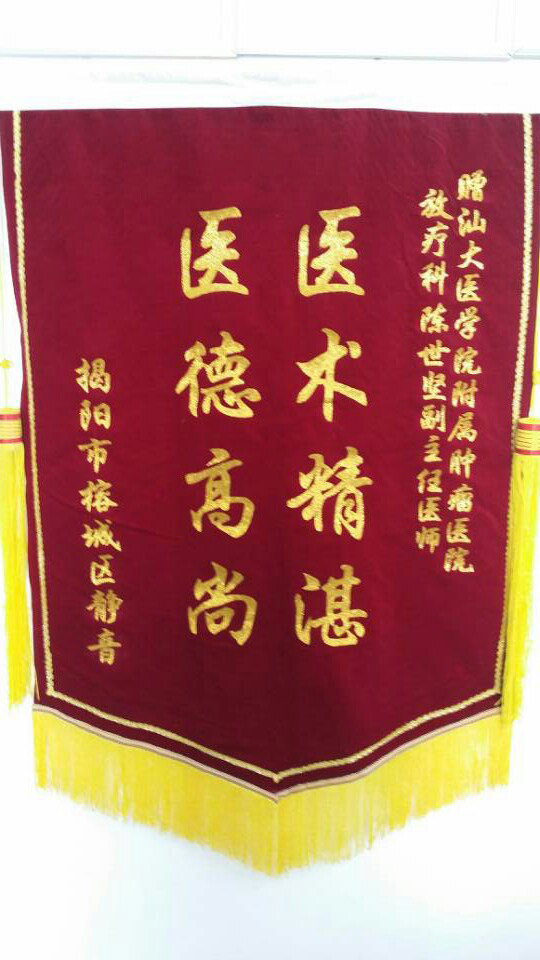 赠汕大医学院附属肿瘤医院
放疗科陈世坚副主任医师
医术精湛
医德高尚
揭阳市榕城区静音